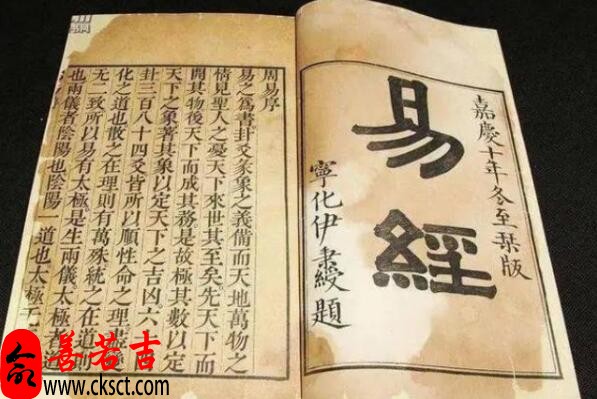 嘉慶十年冬至栞版
易經
寧化伊秉綬題
周易序
易之爲書卦爻彖象之義備而天地萬物之
情見聖人之憂天下來世其至矣先天下而
開其物後天下而成其務是故極其數以定
天下之象著其象以定天下之吉凶六
卦三百八十四爻皆所以順性命之理
化之道也散之在理則有萬殊統之在道則
无二致所以易有太極是生兩儀太極者道
也兩儀者陰陽也陰陽一道也太極
善若吉
www.cksct.com